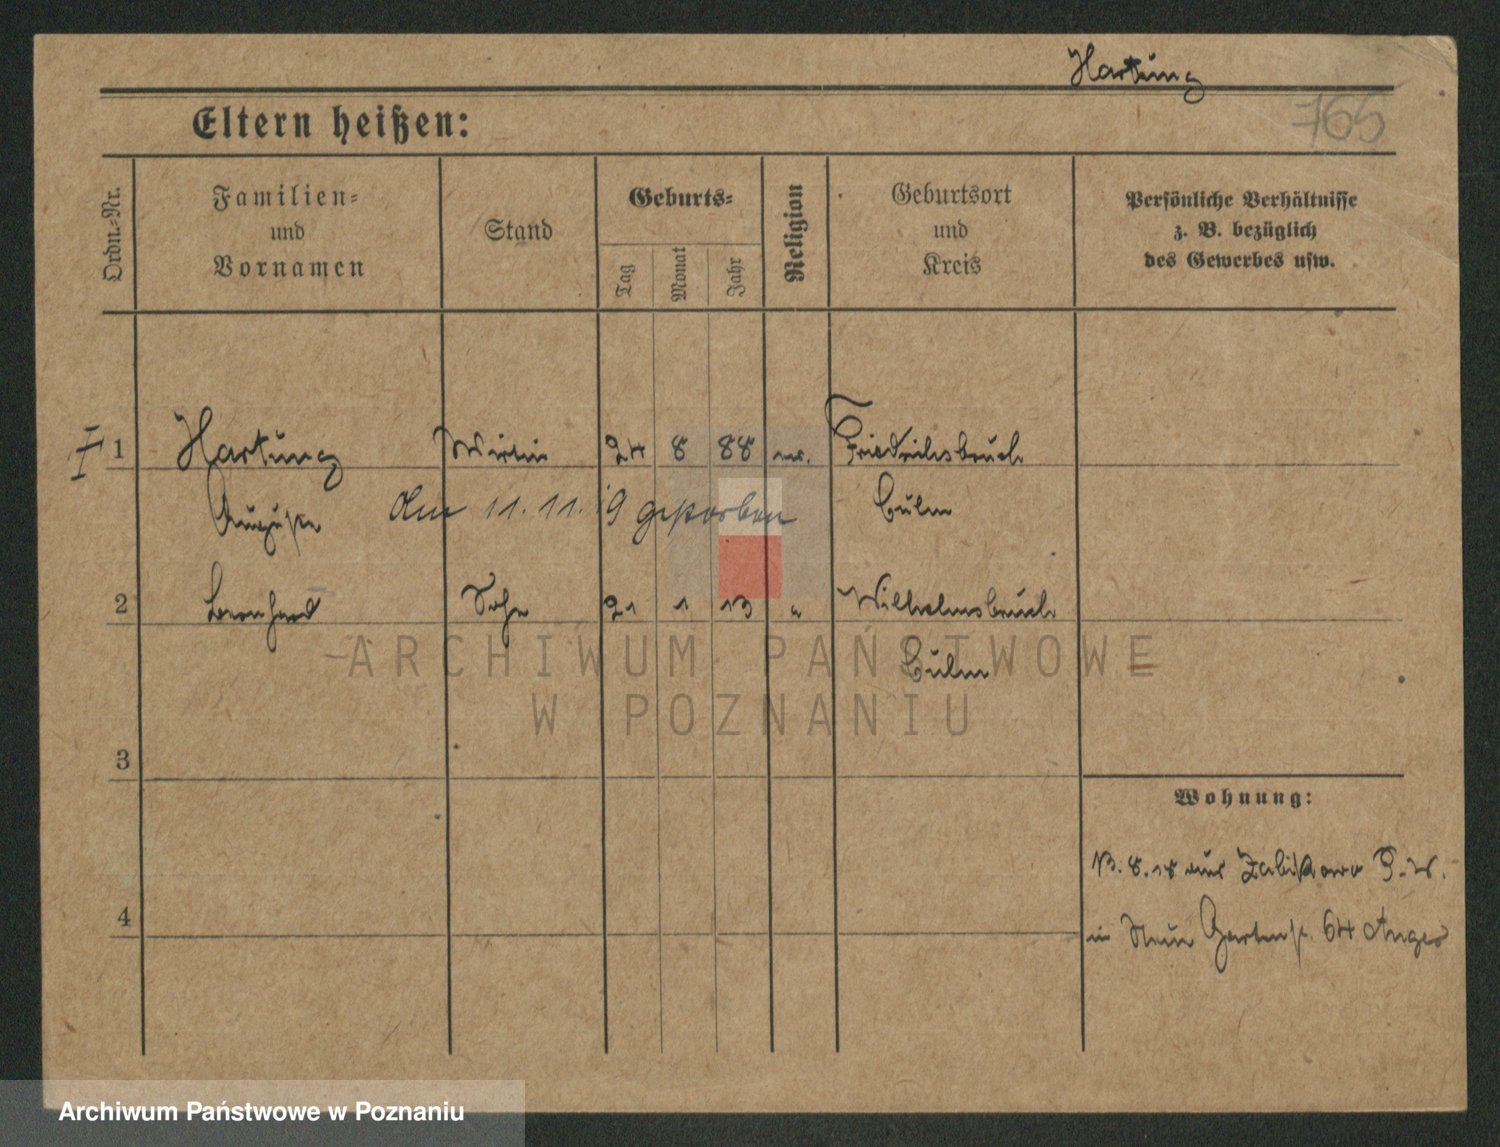 Hartung
765
Eltern heißen:
Ordn.-Nr.
Familien-
und
Vornamen
Stand
Geburts-
Tag
Monat
Jahr
Religion
Geburtsort
und
Kreis
Persönliche Verhältnisse
z. B. bezüglich
des Gewerbes usw.
I 1 Hartung Wirtin 24 8 88 ev. Friedrichsbruch
Auguste Culm
am 11. 11. 19 gestorben
2 Bernhard Sohn 21 1 13 " Wilhelmsbruch
Culm
3
Wohnung:
13. 8. 18 aus Zabikowo P.-W.
4
in Neue Gartenstr. 64
ARCHIWUM PAŃSTWOWE
W POZNANIU
Archiwum Państwowe w Poznaniu